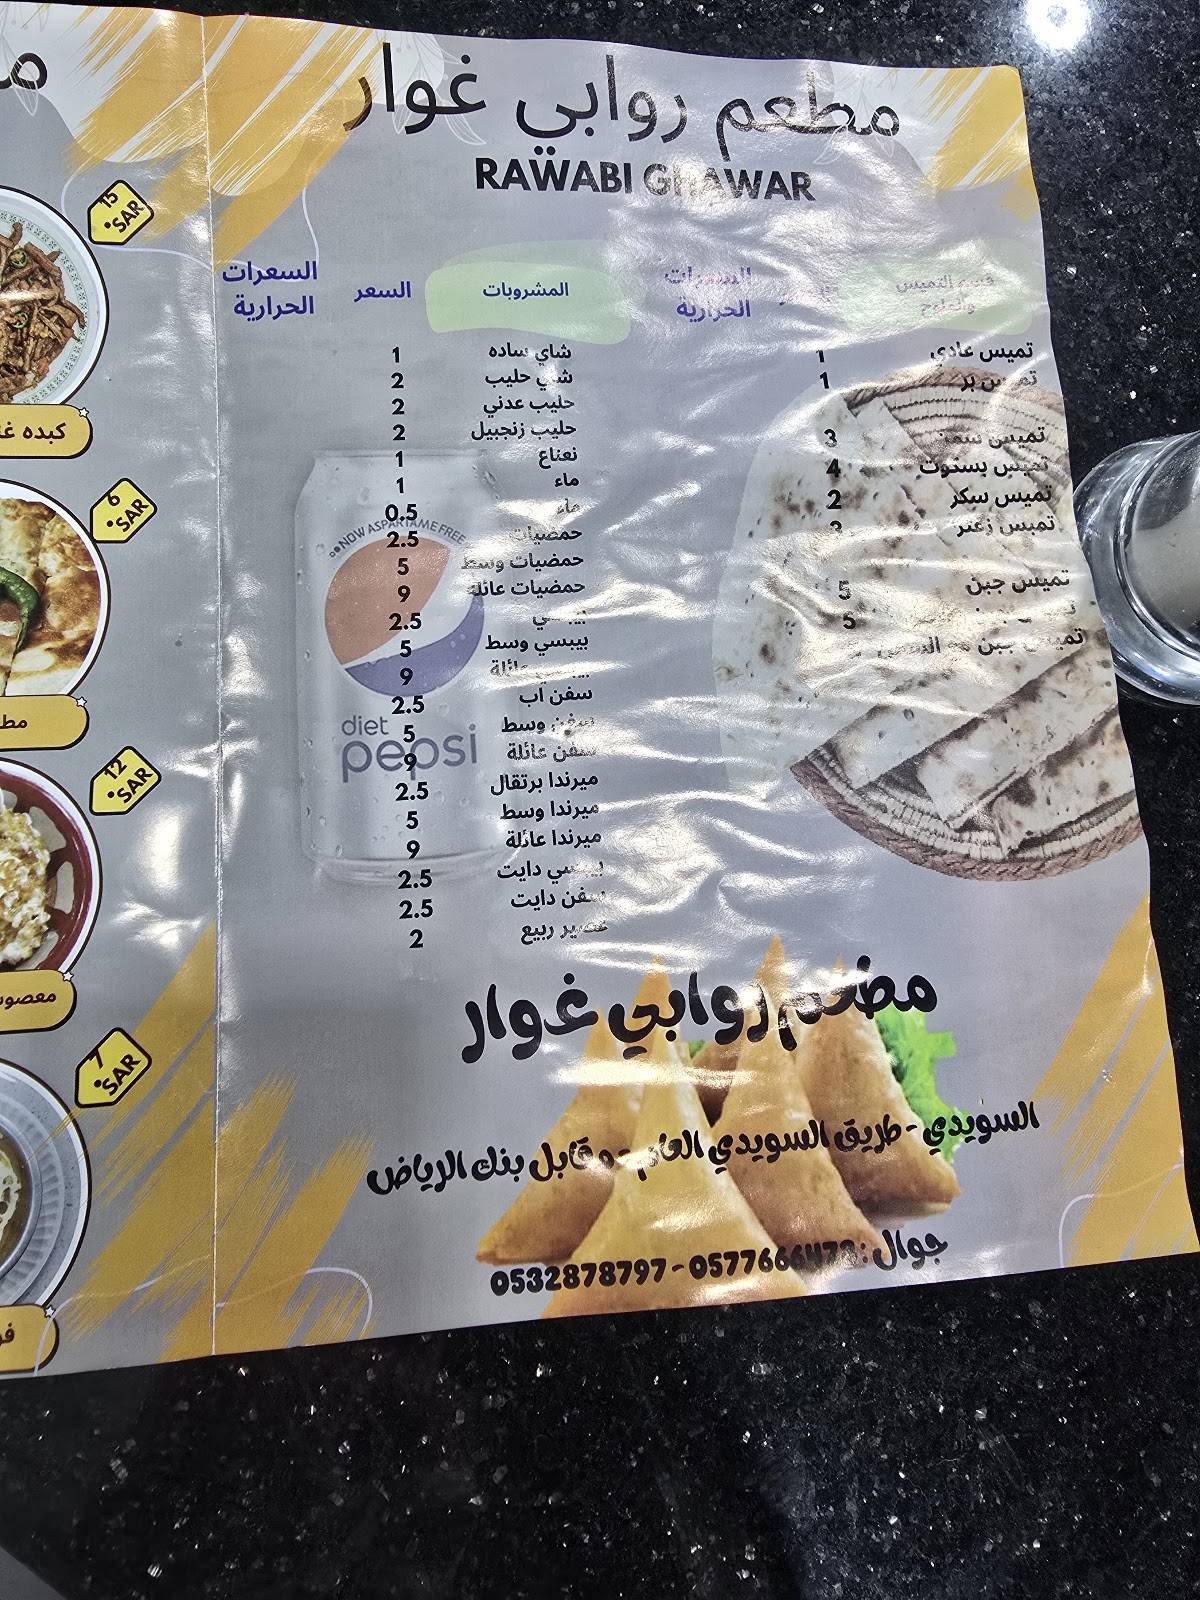 مطعم روابي غوار
RAWABI GHAWAR
قسم التميس
السعرات الحرارية
تميس عادي 1
تميس بر 1
تميس سمن 3
تميس بسكوت 4
تميس سكر 2
تميس زعتر 3
تميس جبن 5
5
تميس جبن مع
المشروبات السعر السعرات الحرارية
شاي ساده 1
شي حليب 2
حليب عدني 2
حليب زنجبيل 2
نعناع 1
ماء 1
ماء 0.5
حمضيات 2.5
حمضيات وسط 5
حمضيات عائلة 9
بيبسي 2.5
بيبسي وسط 5
بيبسي عائلة 9
سفن اب 2.5
سفن وسط 5
سفن عائلة 9
ميرندا برتقال 2.5
ميرندا وسط 5
ميرندا عائلة 9
بيبسي دايت 2.5
سفن دايت 2.5
عصير ربيع 2
NOW ASPARTAME FREE
diet
pepsi
مطعم روابي غوار
السويدي - طريق السويدي العام - مقابل بنك الرياض
جوال : 0532878797 -
15 SAR
كبده
6 SAR
12 SAR
7 SAR